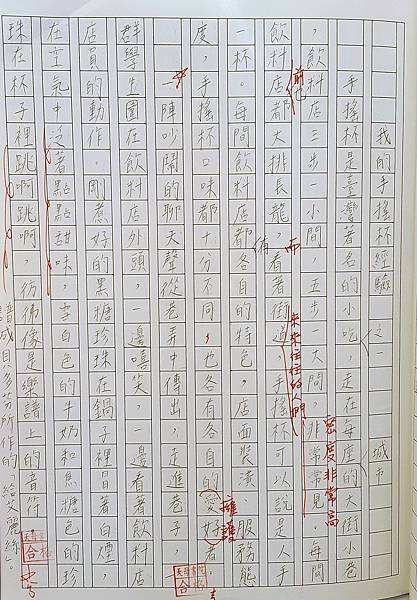 我的手搖杯經驗之一
手搖杯是臺灣著名的小吃，走在每座的大街小巷
城市
，飲料店三步一小間，五步一大間，非常常見。每間
密度非常高
飲料店都大排長龍，看著街道，手搖杯可以說是人手
前也
而
來來往往的人們
一杯。每間飲料店都各自的特色，店面裝潢、服務態
備
度，手搖杯口味都十分不同，也各有各自的愛好者。
擁護
一陣吵鬧的聊天聲從巷弄中傳出，走進巷子，一
群學生圍在飲料店外頭，一邊嘻笑，一邊看著飲料店
店員的動作。剛煮好的黑糖珍珠在鍋子裡冒著白煙，
在空氣中泛著點點甜味，雪白色的牛奶和焦糖色的珍
珠在杯子裡跳啊跳啊，彷彿像是樂譜上的音符，
譜成貝多芬所作的給艾麗絲。
合格
合格